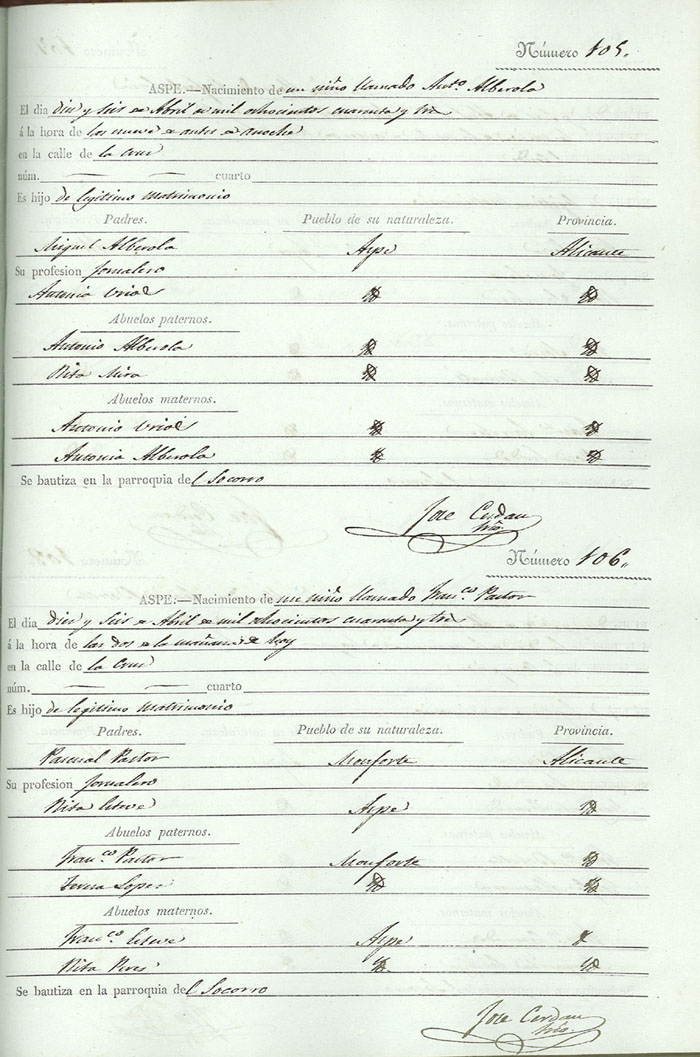 Número 105.
ASPE.—Nacimiento de un niño llamado Antº Alberola
El dia diez y seis de Abril de mil ochocientos cuarenta y tres
á la hora de las nueve de antes de anoche
en la calle de la Cruz
núm. — — cuarto
Es hijo de legitimo Matrimonio
Padres. Pueblo de su naturaleza. Provincia.
Miguel Alberola Aspe Alicante
Su profesion Jornalero
Antonia Uriol
Abuelos paternos.
Antonio Alberola
Rita Mira
Abuelos maternos.
Antonio Uriol
Antonia Alberola
Se bautiza en la parroquia del Socorro
Jose Cerdan
Número 106.
ASPE:—Nacimiento de un niño llamado Franco Pastor
El dia diez y seis de Abril de mil ochocientos cuarenta y tres
á la hora de las dos de la mañana de hoy
en la calle de la Cruz
núm. — — cuarto
Es hijo de legitimo Matrimonio
Padres. Pueblo de su naturaleza. Provincia.
Pascual Pastor Monforte Alicante
Su profesion Jornalero
Rita Esteve Aspe
Abuelos paternos.
Franco Pastor Monforte
Teresa Lopez
Abuelos maternos.
Franco Esteve Aspe
Rita Peres
Se bautiza en la parroquia del Socorro
Jose Cerdan